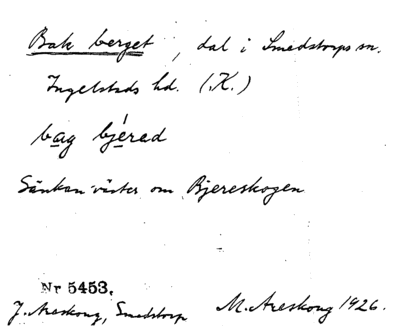 Bak berget, dal i Smedstorps sn.
Ingelstads hd. (K.)
bag bjérad
Sänkan väster om Bjereskogen
Nr 5453.
J. Areskoug, Smedstorp M. Areskoug 1926.